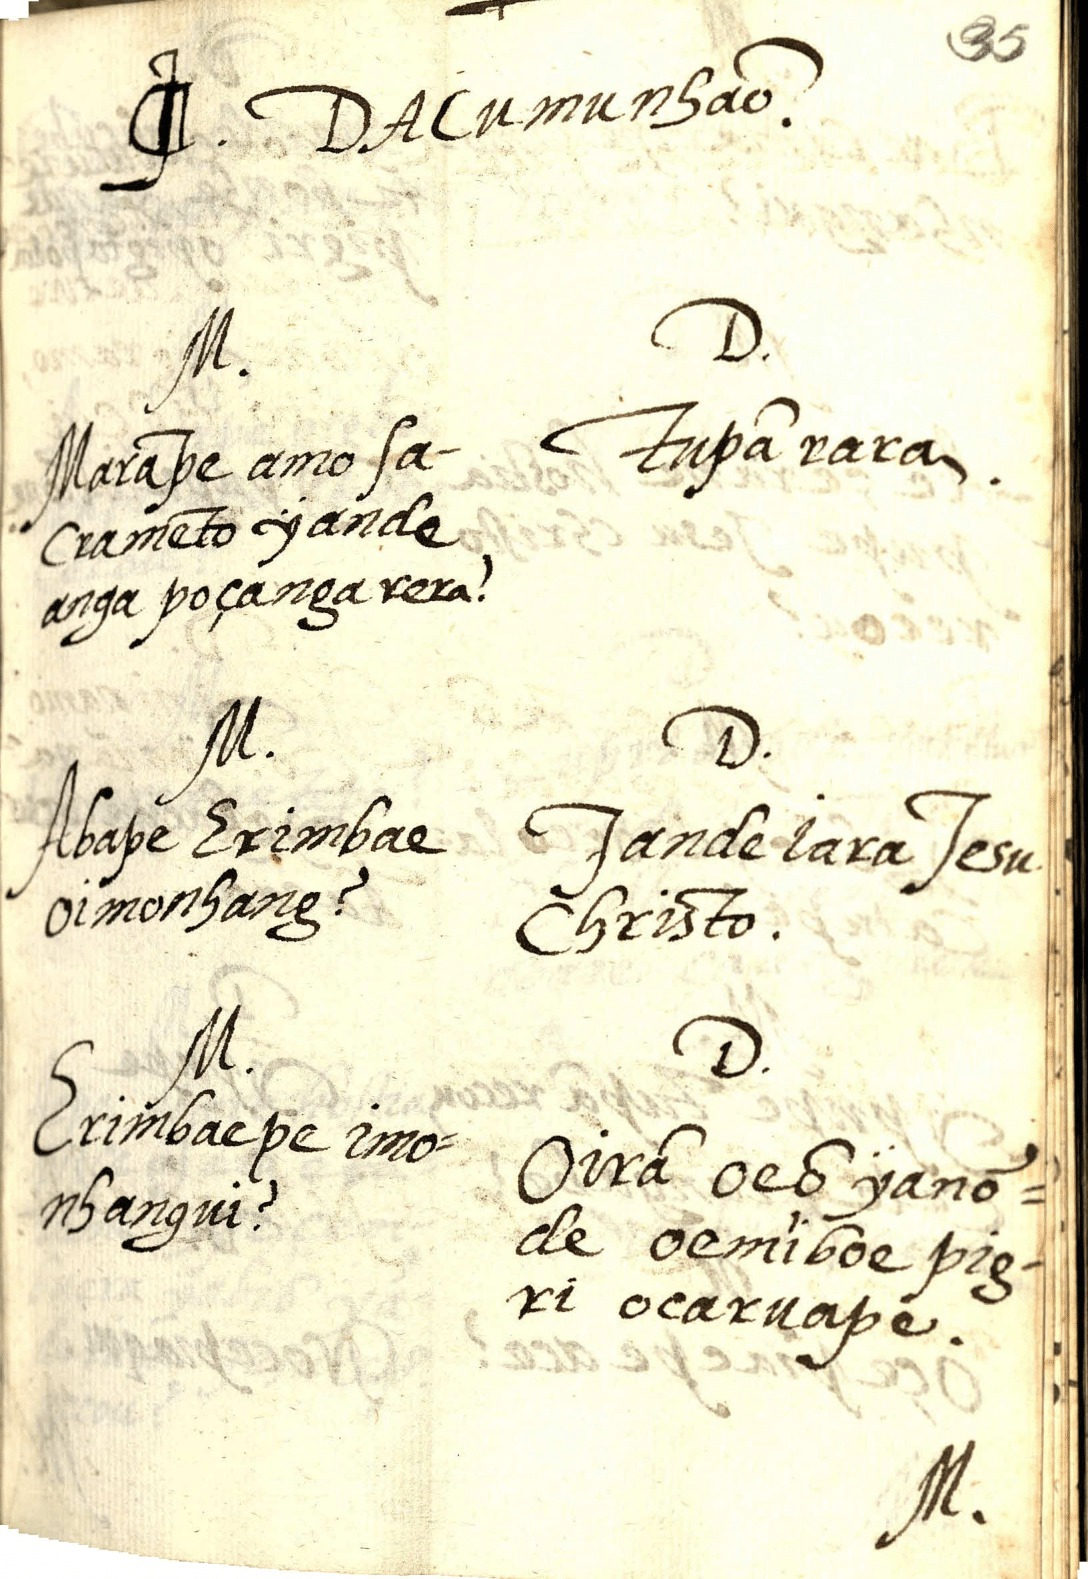 35
¶. DACumunhaõ.
M.
Marãpe amo sa-
cramẽto yande
anga poçanga rera?
D.
tupã rara.
M.
Abape Erimbae
oimonhang?
D.
Jande iara Jesu
Christo.
M.
Erimbaepe imo=
nhangui?
D.
Oirã oeõ yanõ=
de oemiboe pig-
ri ocaruape.
M.